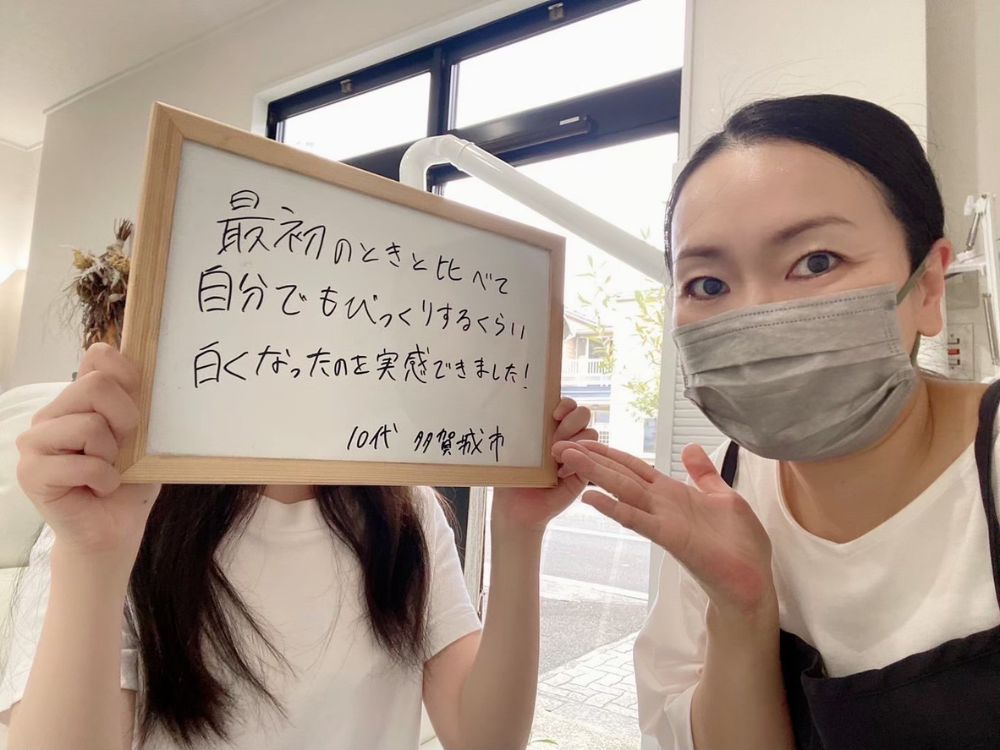 最初のときと比べて
自分でもびっくりするくらい
白くなったのを実感できました!
10代 多賀城市